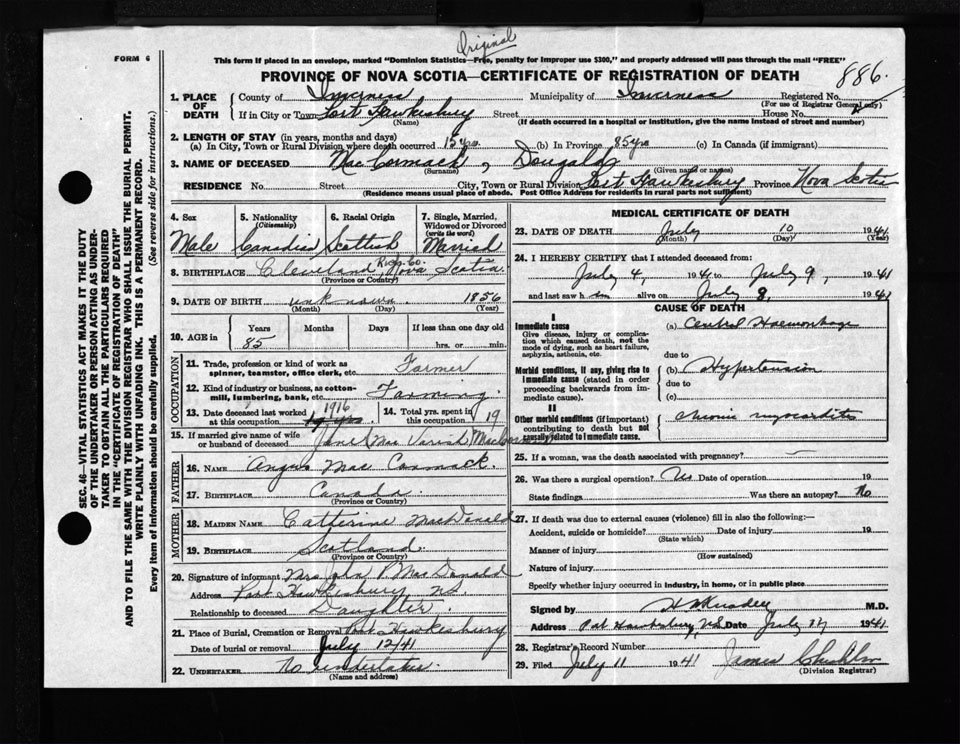 Original
FORM 6
This form if placed in an envelope, marked "Dominion Statistics—Free, penalty for improper use $300," and properly addressed will pass through the mail "FREE"
PROVINCE OF NOVA SCOTIA—CERTIFICATE OF REGISTRATION OF DEATH
886
1. PLACE OF DEATH County of Inverness Municipality of Inverness Registered No.
(For use of Registrar General only)
If in City or Town Port Hawkesbury Street House No.
(Name) (If death occurred in a hospital or institution, give the name instead of street and number)
2. LENGTH OF STAY (in years, months and days)
(a) In City, Town or Rural Division where death occurred 15 yrs (b) In Province 85 yrs (c) In Canada (if immigrant)
3. NAME OF DECEASED MacCormack, Dougald
(Surname) (Given name or names)
RESIDENCE No. Street City, Town or Rural Division Port Hawkesbury Province Nova Scotia
(Residence means usual place of abode. Post Office Address for residents in rural parts not sufficient)
4. Sex Male
5. Nationality (Citizenship) Canadian
6. Racial Origin Scottish
7. Single, Married, Widowed or Divorced (write the word) Married
8. BIRTHPLACE Cleveland, Rich. Co. Nova Scotia
(Province or Country)
9. DATE OF BIRTH unknown 1856
(Month) (Day) (Year)
10. AGE in Years 85 Months Days If less than one day old
hrs. or min.
OCCUPATION
11. Trade, profession or kind of work as spinner, teamster, office clerk, etc. Farmer
12. Kind of industry or business, as cotton-mill, lumbering, bank, etc. Farming
13. Date deceased last worked at this occupation 1916
14. Total yrs. spent in this occupation 19
15. If married give name of wife or husband of deceased Jane (Mac Varish) MacCormack
FATHER
16. NAME Angus MacCormack.
17. BIRTHPLACE Canada
(Province or Country)
MOTHER
18. MAIDEN NAME Catherine MacDonald
19. BIRTHPLACE Scotland.
(Province or Country)
20. Signature of informant Mrs John P. MacDonald
Address Port Hawkesbury N.S.
Relationship to deceased Daughter.
21. Place of Burial, Cremation or Removal Port Hawkesbury
Date of burial or removal July 12/41
22. UNDERTAKER No undertaker.
(Name and address)
MEDICAL CERTIFICATE OF DEATH
23. DATE OF DEATH July 10 1941
(Month) (Day) (Year)
24. I HEREBY CERTIFY that I attended deceased from:
July 4, 1941 to July 9, 1941
and last saw him alive on July 8, 1941
CAUSE OF DEATH
I
Immediate cause
Give disease, injury or complication which caused death, not the mode of dying, such as heart failure, asphyxia, asthenia, etc.
(a) Haemorrhage
due to
Morbid conditions, if any, giving rise to immediate cause (stated in order proceeding backwards from immediate cause).
(b) Hypertension
due to
(c)
II
Other morbid conditions (if important) contributing to death but not causally related to immediate cause.
Chronic myocarditis
25. If a woman, was the death associated with pregnancy?
26. Was there a surgical operation? No Date of operation 19
State findings Was there an autopsy? No
27. If death was due to external causes (violence) fill in also the following:—
Accident, suicide or homicide? Date of injury 19
(State which)
Manner of injury
(How sustained)
Nature of injury
Specify whether injury occurred in industry, in home, or in public place
Signed by M.D.
Address Port Hawkesbury, N.S. Date July 1941
28. Registrar's Record Number
29. Filed July 11 1941 James
(Division Registrar)
SEC. 46—VITAL STATISTICS ACT MAKES IT THE DUTY
OF THE UNDERTAKER OR PERSON ACTING AS UNDER-
TAKER TO OBTAIN ALL THE PARTICULARS REQUIRED
IN THE "CERTIFICATE OF REGISTRATION OF DEATH"
AND TO FILE THE SAME WITH THE DIVISION REGISTRAR WHO SHALL ISSUE THE BURIAL PERMIT.
WRITE PLAINLY WITH UNFADING INK. THIS IS A PERMANENT RECORD.
Every item of Information should be carefully supplied. (See reverse side for instructions.)